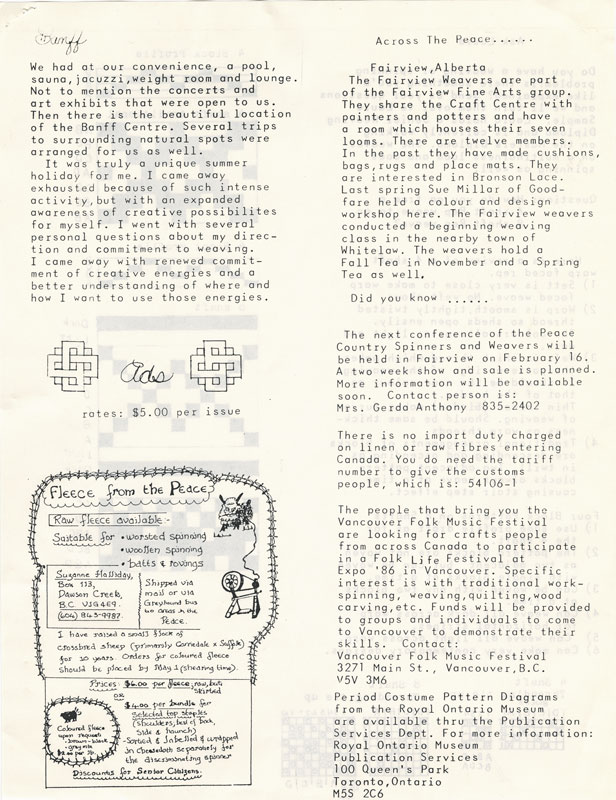 Banff
We had at our convenience, a pool,
sauna,jacuzzi,weight room and lounge.
Not to mention the concerts and
art exhibits that were open to us.
Then there is the beautiful location
of the Banff Centre. Several trips
to surrounding natural spots were
arranged for us as well.
It was truly a unique summer
holiday for me. I came away
exhausted because of such intense
activity,but with an expanded
awareness of creative possibilites
for myself. I went with several
personal questions about my direc-
tion and commitment to weaving.
I came away with renewed commit-
ment of creative energies and a
better understanding of where and
how I want to use those energies.
Ads
rates: $5.00 per issue
Fleece from the Peace
Raw fleece available:-
Suitable for • worsted spinning
• woollen spinning
• batts & rovings
Suzanne Halliday,
Box 133,
Dawson Creek,
B.C. V1G4E9.
(604) 843-9987.
Shipped via
mail or via
Greyhound bus
to areas in the
Peace.
I have raised a small flock of
crossbred sheep (primarily Corriedale x Suffolk)
for 10 years. Orders for coloured fleece
should be placed by May 1 (shearing time).
Prices: $6.00 per fleece, raw, but
skirted
or
$4.00 per bundle for
selected top staples
(shoulders, best of back,
side & haunch)
-Sorted & labelled & wrapped
in cheesecloth separately for
the discriminating spinner
Coloured fleece
upon request
-brown -black
-grey mix
Discounts for Senior Citizens.
Across The Peace......
Fairview,Alberta
The Fairview Weavers are part
of the Fairview Fine Arts group.
They share the Craft Centre with
painters and potters and have
a room which houses their seven
looms. There are twelve members.
In the past they have made cushions,
bags,rugs and place mats. They
are interested in Bronson Lace.
Last spring Sue Millar of Good-
fare held a colour and design
workshop here. The Fairview weavers
conducted a beginning weaving
class in the nearby town of
Whitelaw. The weavers hold a
Fall Tea in November and a Spring
Tea as well.
Did you know ......
The next conference of the Peace
Country Spinners and Weavers will
be held in Fairview on February 16.
A two week show and sale is planned.
More information will be available
soon. Contact person is:
Mrs. Gerda Anthony 835-2402
There is no import duty charged
on linen or raw fibres entering
Canada. You do need the tariff
number to give the customs
people, which is: 54106-1
The people that bring you the
Vancouver Folk Music Festival
are looking for crafts people
from across Canada to participate
in a Folk Life Festival at
Expo '86 in Vancouver. Specific
interest is with traditional work-
spinning, weaving,quilting,wood
carving,etc. Funds will be provided
to groups and individuals to come
to Vancouver to demonstrate their
skills. Contact:
Vancouver Folk Music Festival
3271 Main St., Vancouver,B.C.
V5V 3M6
Period Costume Pattern Diagrams
from the Royal Ontario Museum
are available thru the Publication
Services Dept. For more information:
Royal Ontario Museum
Publication Services
100 Queen's Park
Toronto,Ontario
M5S 2C6